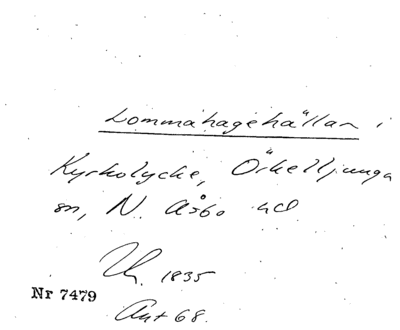 Lommahagehällan i
Kyrkolycke, Örkelljunga
sn, N. Åsbo hd
Uh. 1835
Nr 7479
Ant 68.